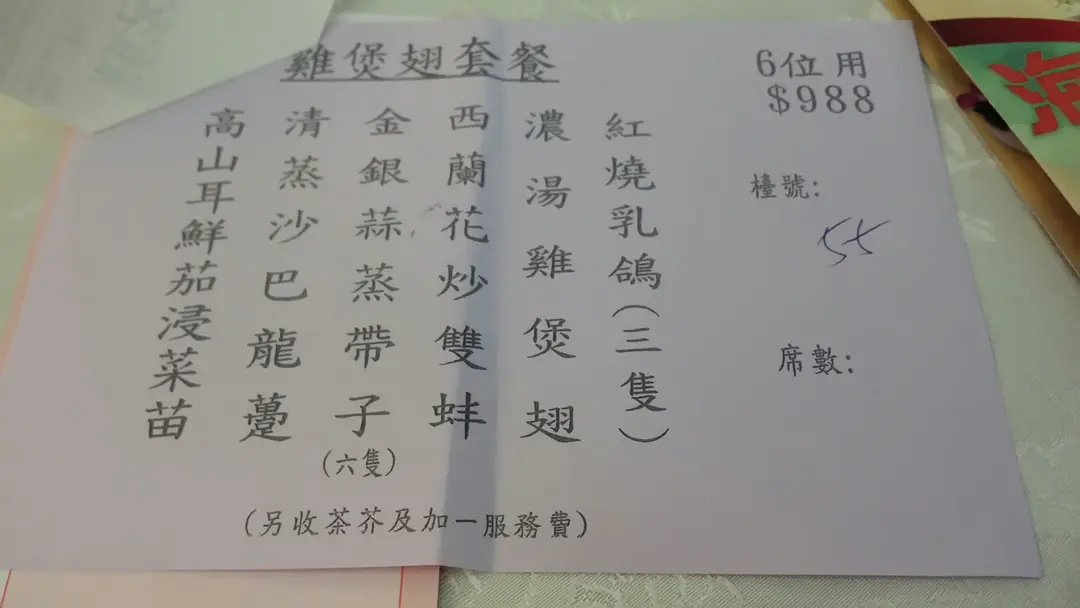 雞煲翅套餐
6位用
$988
紅燒乳鴿(三隻)
濃湯雞煲翅
西蘭花炒雙蚌
金銀蒜蒸帶子
(六隻)
清蒸沙巴龍躉
高山耳鮮茄浸菜苗
檯號:
55
席數:
(另收茶芥及加一服務費)